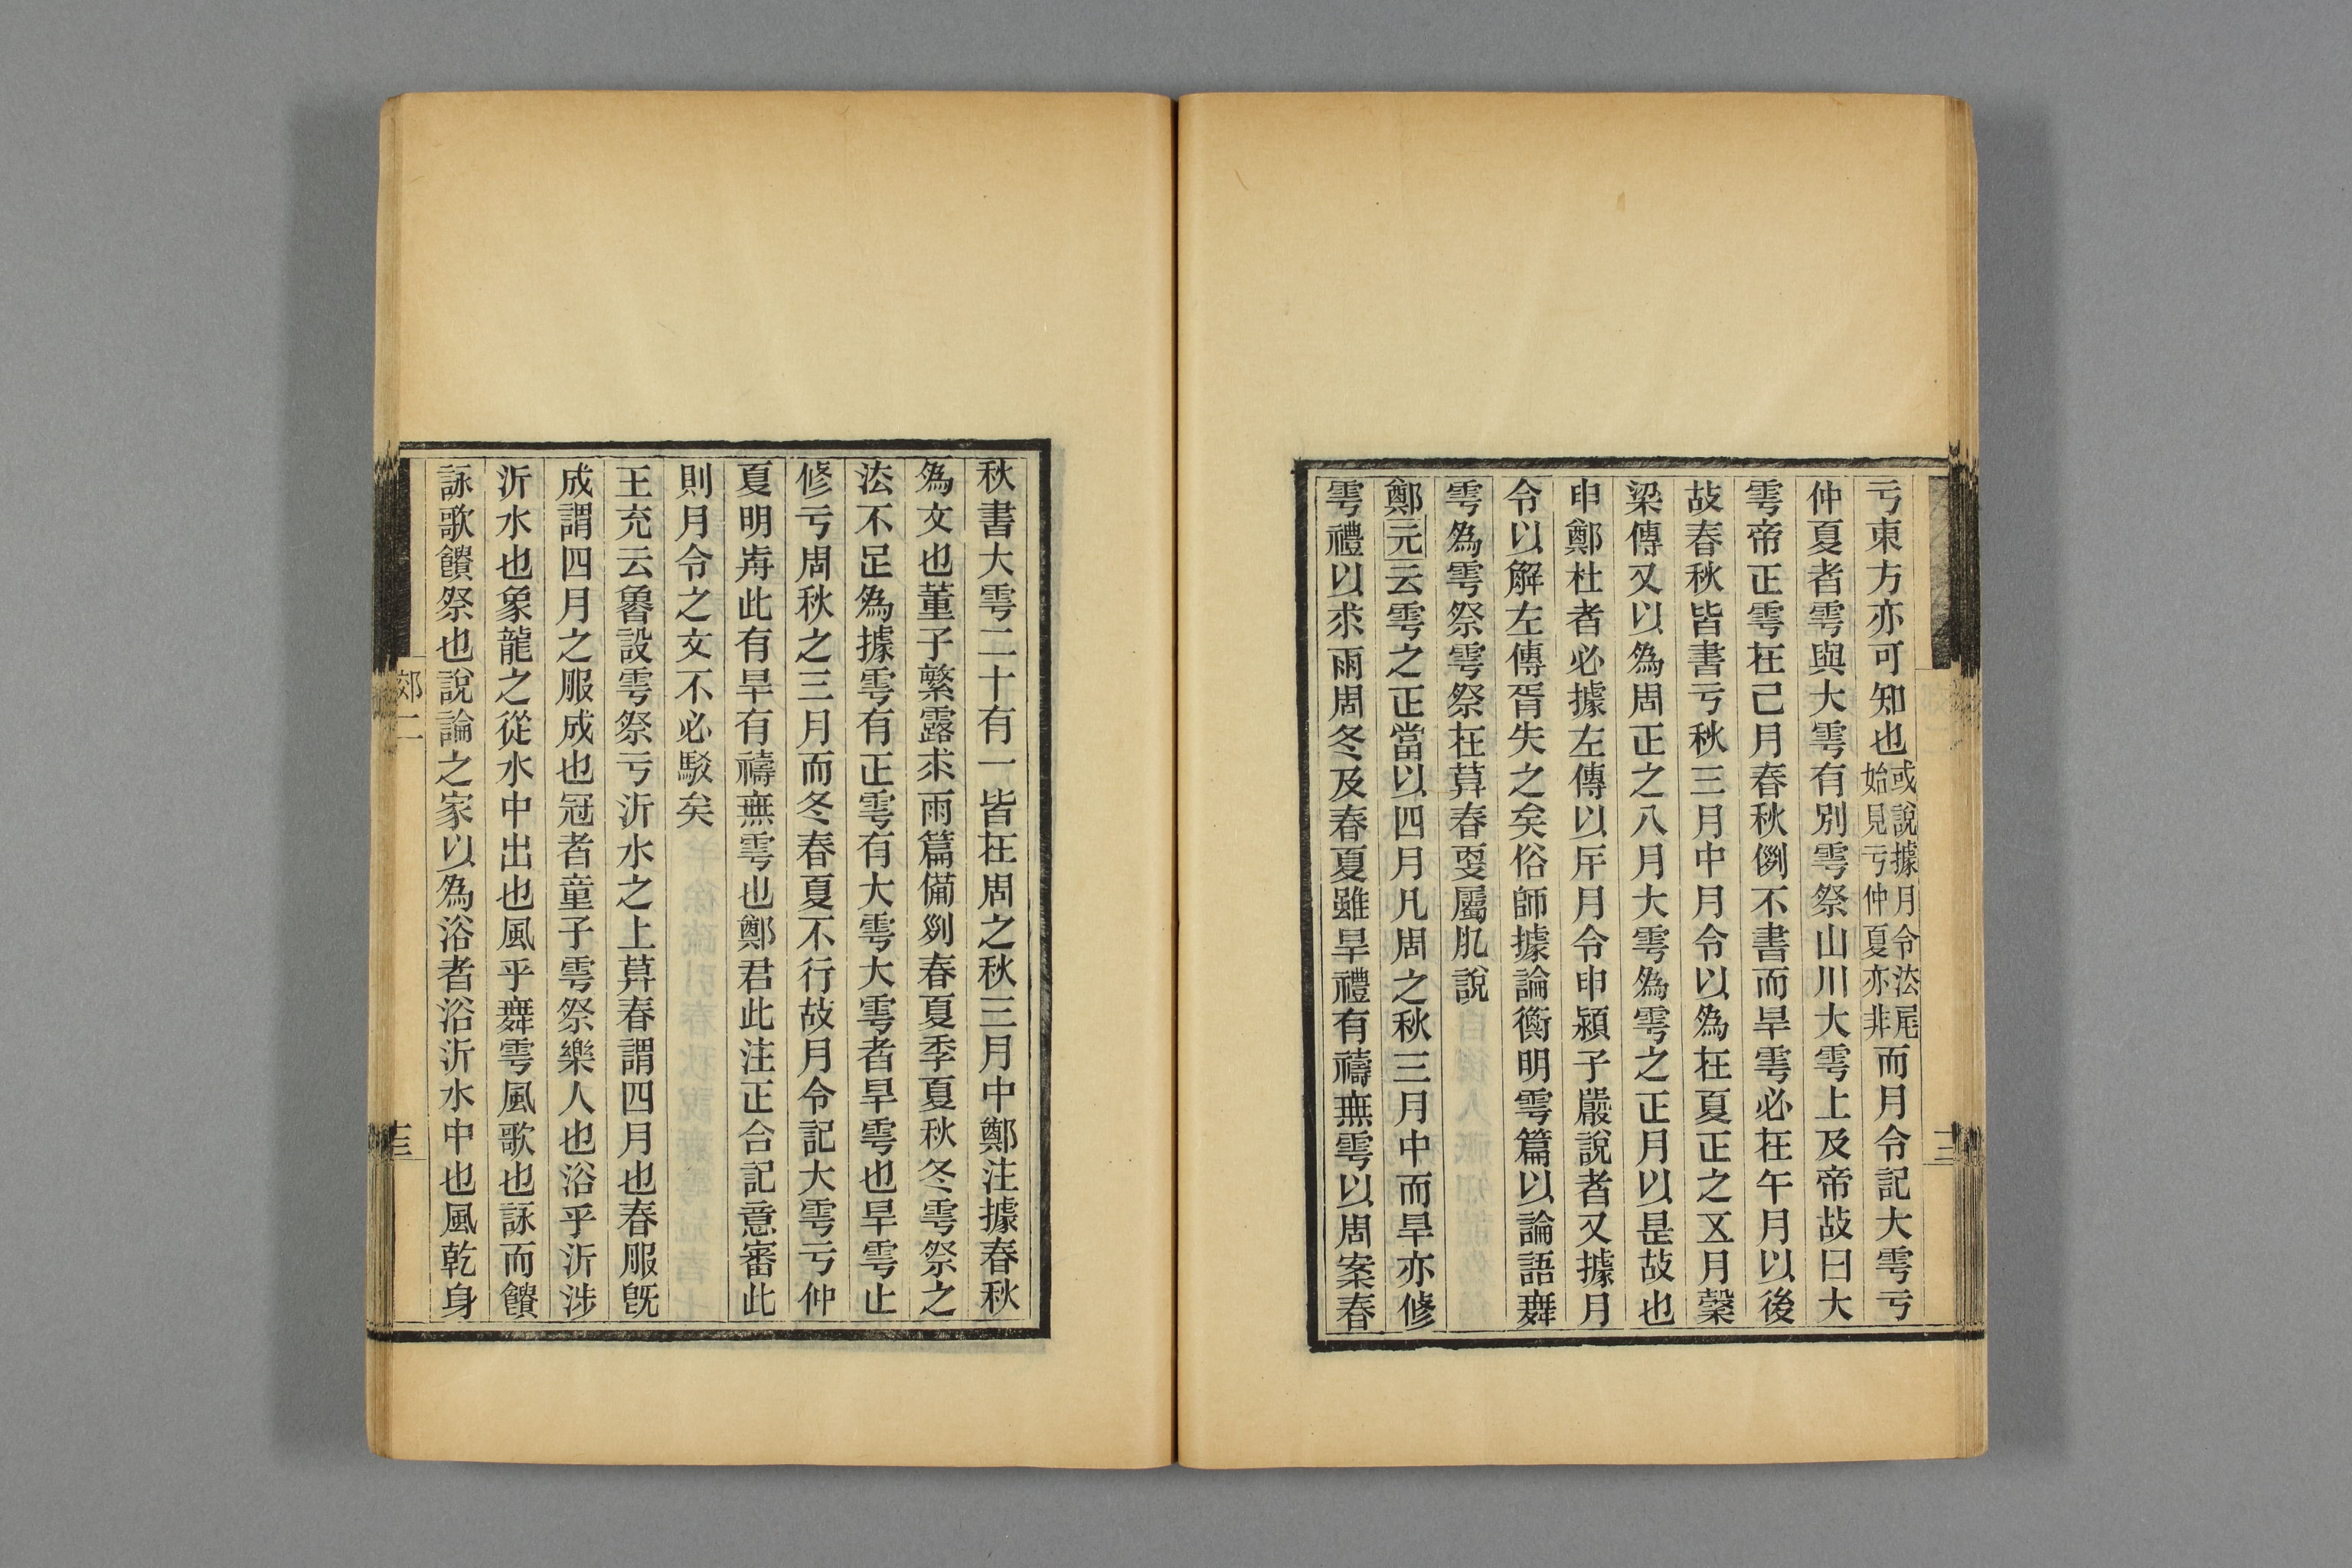 亏東方亦可知也或說據月令㳒尾始見亏仲夏亦非而月令記大雩亏
仲夏者雩與大雩有別雩祭山川大雩上及帝故曰大
雩帝正雩在己月春秋例不書而旱雩必在午月以後
故春秋皆書亏秋三月中月令以為在夏正之五月糳
梁傳又以為周正之八月大雩為雩之正月以是故也
申鄭杜者必據左傳以斥月令申潁子嚴說者又據月
令以解左傳胥失之矣俗師據論衡明雩篇以論語舞
雩為雩祭雩祭在莫春更屬肊說
鄭元云雩之正當以四月凡周之秋三月中而旱亦修
雩禮以求雨周冬及春夏雖旱禮有禱無雩以周案春
秋書大雩二十有一皆在周之秋三月中鄭注據春秋
為文也董子繁露求雨篇備列春夏季夏秋冬雩祭之
㳒不足為據雩有正雩有大雩大雩者旱雩也旱雩止
修亏周秋之三月而冬春夏不行故月令記大雩亏仲
夏明歬此有旱有禱無雩也鄭君此注正合記意審此
則月令之文不必駁矣
王充云魯設雩祭亏沂水之上莫春謂四月也春服旣
成謂四月之服成也冠者童子雩祭樂人也浴乎沂涉
沂水也象龍之從水中出也風乎舞雩風歌也詠而饙
詠歌饙祭也說論之家以為浴者浴沂水中也風乾身
郊二